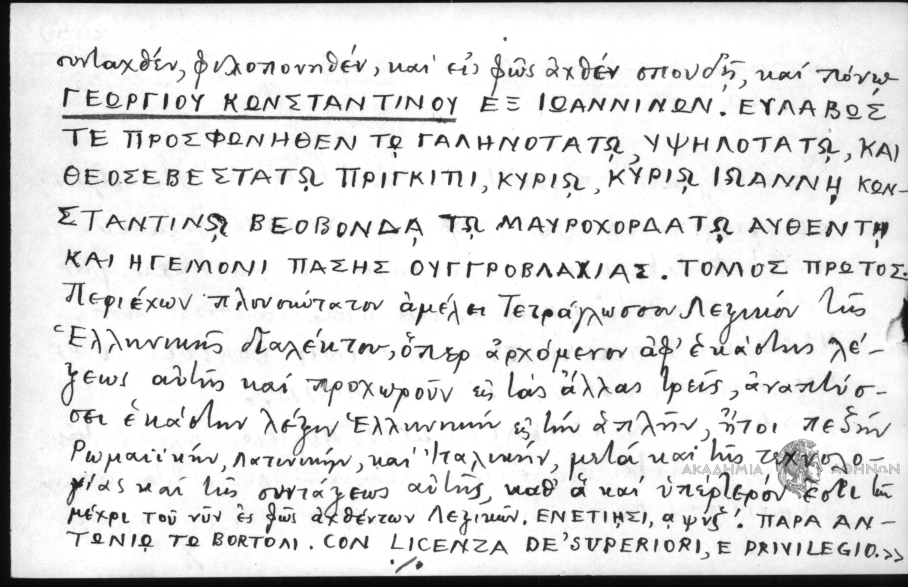 συνταχθέν, φιλοπονηθέν, καὶ εἰς φῶς ἀχθέν σπουδῇ, καί πόνῳ
ΓΕΩΡΓΙΟΥ ΚΩΝΣΤΑΝΤΙΝΟΥ ΕΞ ΙΩΑΝΝΙΝΩΝ. ΕΥΛΑΒΩΣ
ΤΕ ΠΡΟΣΦΩΝΗΘΕΝ Τῼ ΓΑΛΗΝΟΤΑΤῼ, ΥΨΗΛΟΤΑΤῼ, ΚΑΙ
ΘΕΟΣΕΒΕΣΤΑΤῼ ΠΡΙΓΚΙΠΙ, ΚΥΡΙῼ, ΚΥΡΙῼ ΙΩΑΝΝῌ ΚΩΝ-
ΣΤΑΝΤΙΝῼ ΒΕΟΒΟΝΔᾼ Τῼ ΜΑΥΡΟΧΟΡΔΑΤῼ ΑΥΘΕΝΤῌ
ΚΑΙ ΗΓΕΜΟΝΙ ΠΑΣΗΣ ΟΥΓΓΡΟΒΛΑΧΙΑΣ. ΤΟΜΟΣ ΠΡΩΤΟΣ.
Περιέχων πλουσιώτατον ἀμέλει Τετράγλωσσον Λεξικόν τῆς
Ἑλληνικῆς διαλέκτου, ὅπερ ἀρχόμενον ἀφ' ἑκάστης λέ-
ξεως αὐτῆς καί προχωροῦν εἰς τάς ἄλλας τρεῖς, ἀναπτύσ-
σει ἑκάστην λέξιν Ἑλληνικήν εἰς τήν ἁπλῆν, ἤτοι πεζήν
Ρωμαιϊκήν, Λατινικήν, καί Ἰταλικήν, μετά καί τῆς τεχνολο-
γίας καί τῆς συντάξεως αὐτῆς, καθ' ἅ καί ὑπέρτερόν ἐστι τῶν
μέχρι τοῦ νῦν ἐς φῶς ἀχθέντων Λεξικῶν. ΕΝΕΤΙΗΣΙ, αψνζ'. ΠΑΡΑ ΑΝ-
ΤΩΝΙῼ Τῼ BORTOLI. CON LICENZA DE' SUPERIORI, E PRIVILEGIO.>>
ΑΚΑΔΗΜΙΑ ΑΘΗΝΩΝ